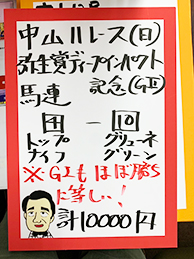 中山11レース(日)
弥生賞ディープインパクト
記念(GⅡ)
馬連
田 - 回
トップ グリューネ
ナイフ グリーン
※GⅠもほぼ勝S
に等しい!
計10000円